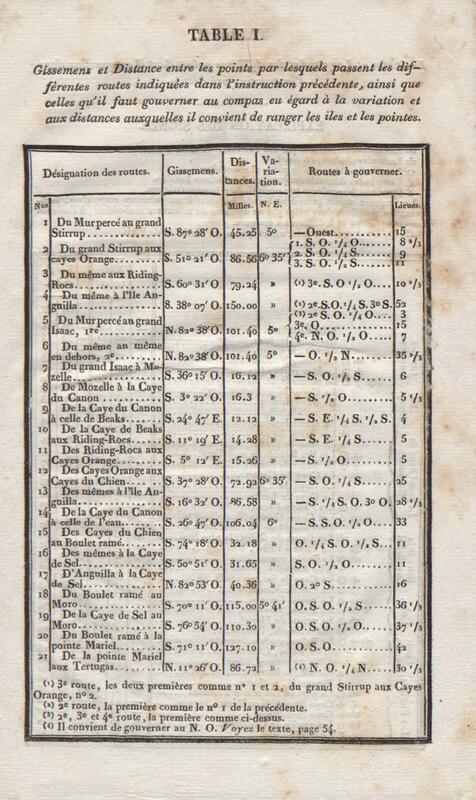 TABLE I.
Gissemens et Distance entre les points par lesquels passent les dif-
férentes routes indiquées dans l'instruction précédente, ainsi que
celles qu'il faut gouverner au compas eu égard à la variation et
aux distances auxquelles il convient de ranger les iles et les pointes.
Désignation des routes. Gissemens. Dis- tances. Va- ria- tion. Routes à gouverner.
Nos Milles. N. E. Lieues.
1 Du Mur percé au grand
Stirrup.......... S. 87° 28' O. 45.25 5° —Ouest...... 15
2 Du grand Stirrup aux 1. S. O. 1/4 O... 8 2/3
cayes Orange........ S. 51° 21' O. 86.56 6° 35' 2. S. O. 1/2 S... 9
3. S. O....... 11
3 Du même aux Riding-
Rocs............ S. 60° 31' O. 79.24 » (1) 3e. S. O 1/2 O... 10 1/3
4 Du même à l'Ile An-
guilla........... S. 38° 07' O. 150.00 » (2) 2e. S.O. 1/4 S. 3° S. 52
5 Du Mur percé au grand (3) 2e S. O. 1/4 O... 3
Isaac, 1re......... N. 82° 38' O. 101.40 5° 3e. O........ 15
4e. N. O. 1/2 O. 7
6 Du même au même
en dehors, 2e....... N. 82° 38' O. 101.40 5° — O. 1/2 N..... 35 2/3
7 Du grand Isaac à Mo-
zelle............ S. 36° 15' O. 16.12 » — S. O. 1/2 S... 6
8 De Mozelle à la Caye
du Canon......... S. 3° 22' O. 16.3 » — S. 1/2 O..... 5 1/3
9 De la Caye du Canon
à celle de Beaks..... S. 24° 47' E. 12.12 » — S. E. 1/4 S. 1/2 S. 4
10 De la Caye de Beaks
aux Riding-Rocs..... S. 11° 19' E. 14.28 » — S. E. 1/4 S.... 5
11 Des Riding-Rocs aux
Cayes Orange....... S. 5° 12' E. 15.26 » — S. 1/2 O..... 5
12 Des Cayes Orange aux
Cayes du Chien..... S. 37° 28' O. 72.92 6° 35' — S. O. 1/4 S... 25
13 Des mêmes à l'Ile An-
guilla........... S. 16° 32' O. 86.58 » — S. 1/4 S. O. 3° O. 28 1/3
14 De la Caye du Canon
à celle de l'eau...... S. 26° 47' O. 106.04 6° — S. S. O. 1/2 O... 33
15 Des Cayes du Chien
au Boulet ramé...... S. 74° 18' O. 32.18 » O. 1/4 S. O. 1/2 S... 11
16 Des mêmes à la Caye
de Sel........... S. 50° 51' O. 31.65 » S. O. 1/2 O..... 11
17 D'Anguilla à la Caye
de Sel.......... N. 82° 53' O. 40.36 » O. 2° S....... 16
18 Du Boulet ramé au
Moro........... S. 70° 11' O. 115.00 5° 41' O. S. O. 1/2 S... 36 1/3
19 De la Caye de Sel au
Moro........... S. 76° 54' O. 110.30 » O. S. O. 1/2 O... 37 1/3
20 Du Boulet ramé à la
pointe Mariel....... S. 71° 11' O. 127.10 » O. S. O....... 42
21 De la pointe Mariel
aux Tertugas....... N. 11° 26' O. 86.72 » (4) N. O. 1/4 N... 30 1/3
(1) 3e route, les deux premières comme nos 1 et 2, du grand Stirrup aux Cayes
Orange, no 2.
(2) 2e route, la première comme le no 1 de la précédente.
(3) 2e, 3e et 4e route, la première comme ci-dessus.
(4) Il convient de gouverner au N. O. Voyez le texte, page 54.